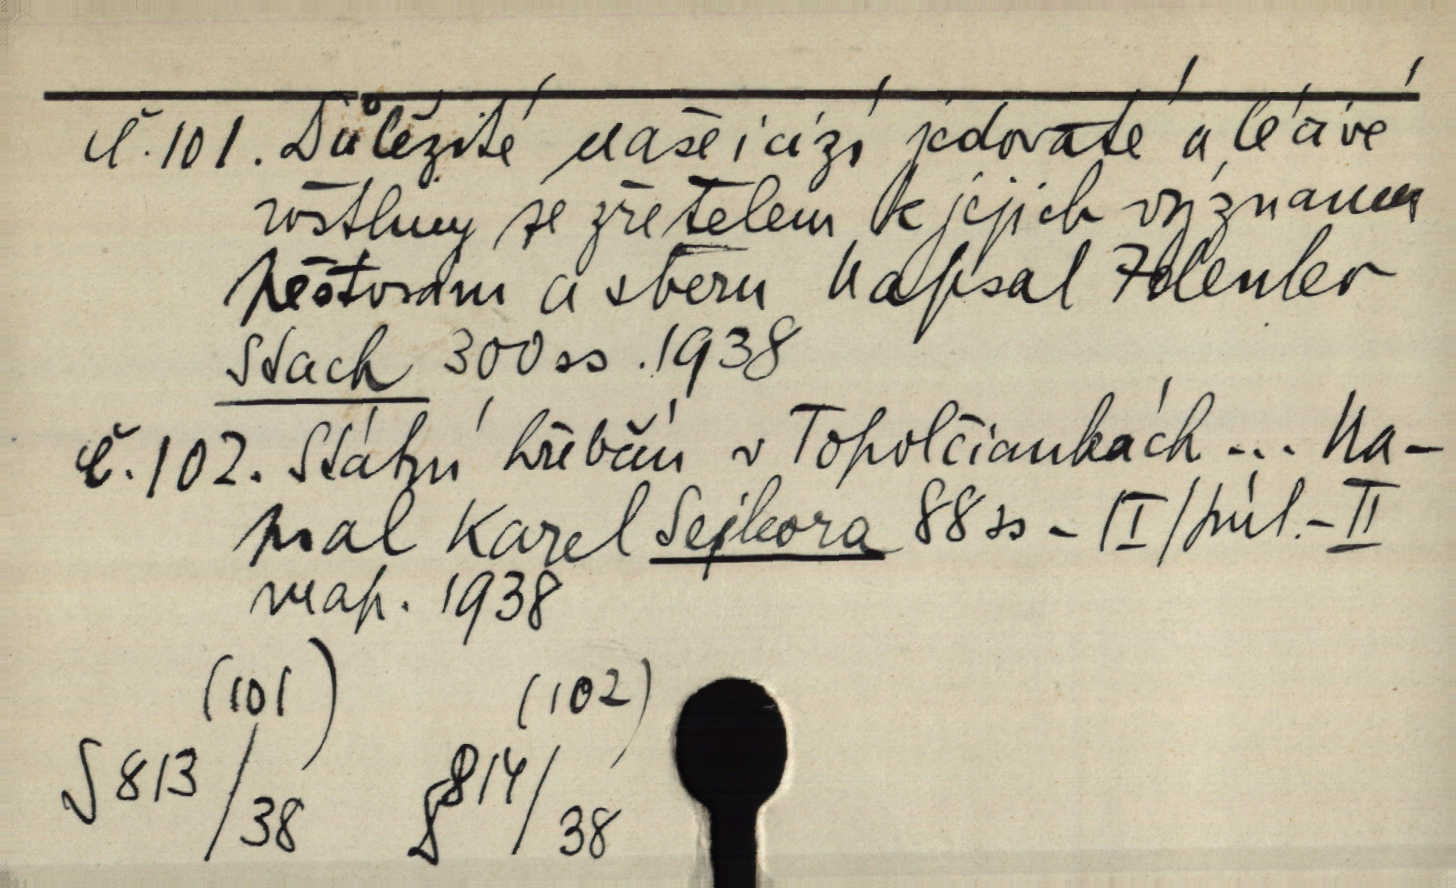 č. 101. Důležité naše i cizí jedovaté a léčivé
rostliny se zřetelem k jejich významu
pěstování a sběru Napsal Zdeněk
Stach 300 ss. 1938
č. 102. Státní hřebčín v Topolčiankách ... Na-
psal Karel Sejkora 88 ss - (I) příl. - II
map. 1938
(101) (102)
813/38 814/38